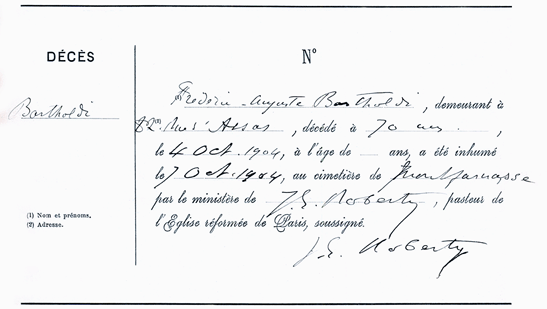 DÉCÈS
Nº
Bartholdi
(1) Frédéric-Auguste Bartholdi, demeurant à
82 (2) Rue d'Assas, décédé à 70 ans,
le 4 Oct. 1904, à l'âge de ans, a été inhumé
le 7 Oct. 1904, au cimetière de Montparnasse
par le ministère de J. E. Roberty, pasteur de
l'Eglise réformée de Paris, soussigné.
(1) Nom et prénoms.
(2) Adresse.
J. E. Roberty